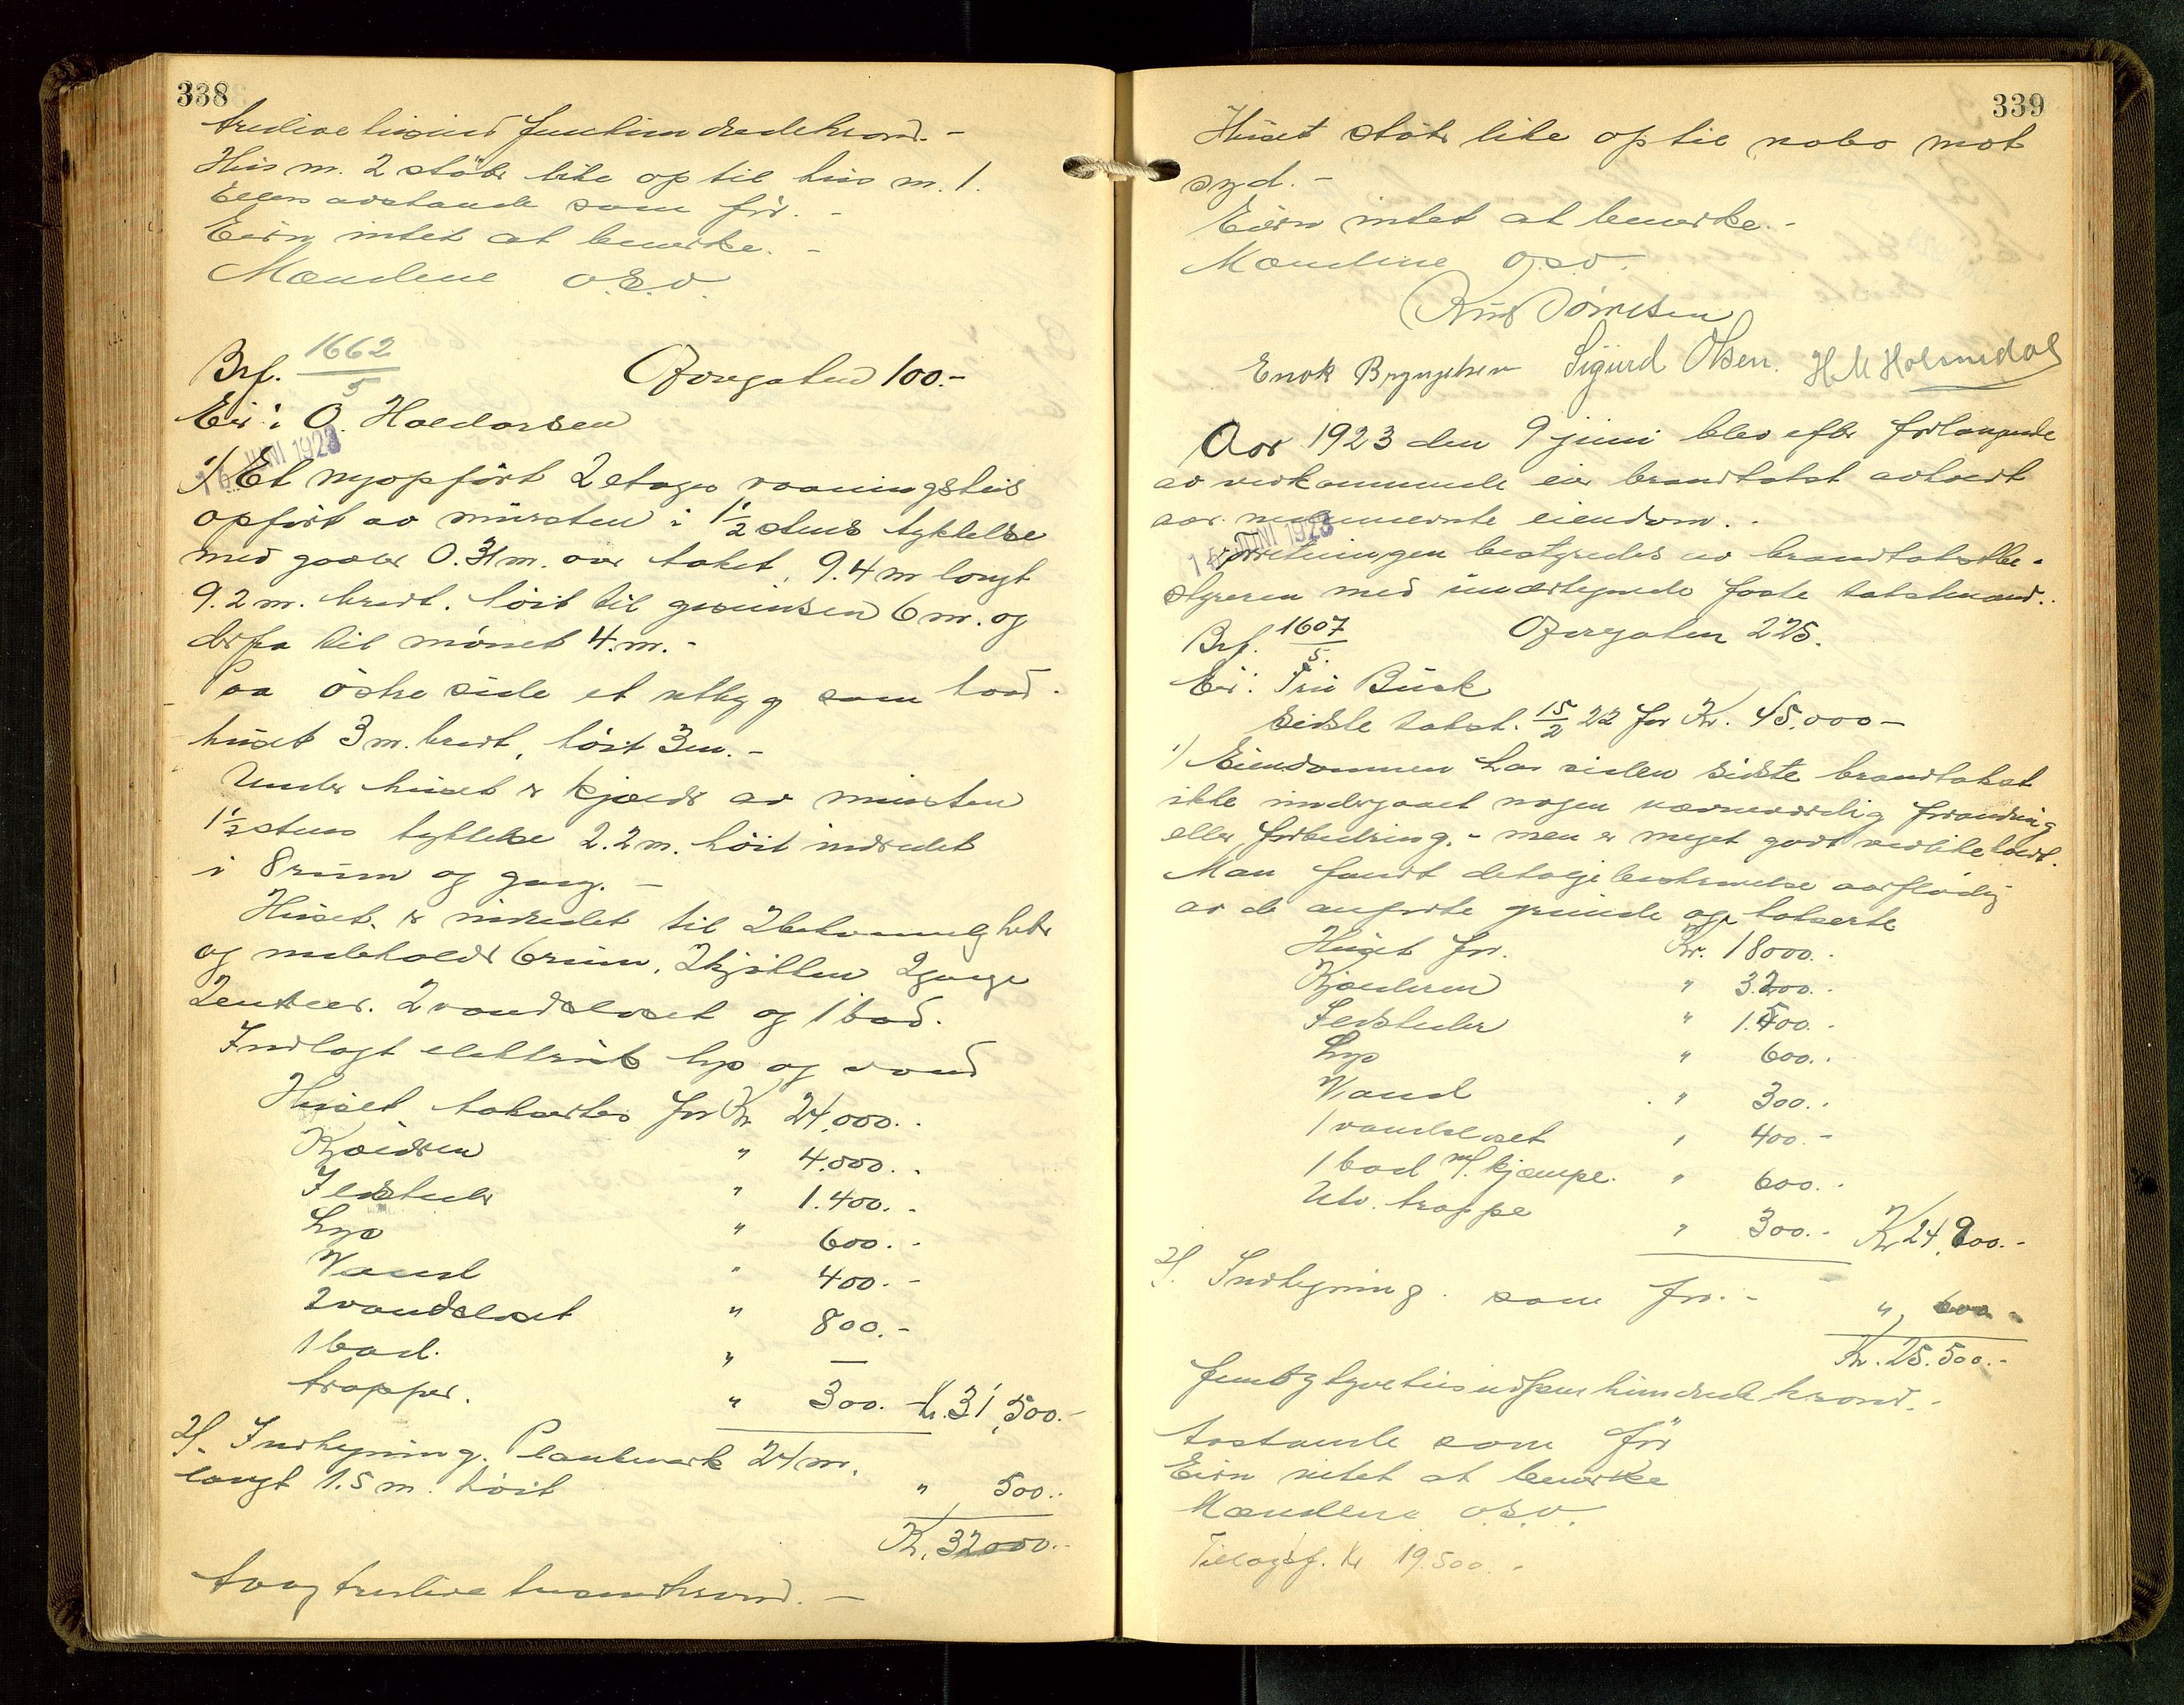 338
tredive tusind femhundredekroner. -
Hus m. 2 støter like op til hus m. 1.
Ellers avstande som før. -
Eiern intet at bemerke. -
Mændene o.s.v.
Brf. 1662/5 Øvregaten 100.-
Eier: O. Haldorsen
16 JUNI 1923
1) Et nyopført 2 etages vaaningshus
opført av mursten i 1½ stens tykkelse
med gavler 0.31 m. over taket, 9.4 m langt
9.2 m. bredt. høit til gesimsen 6 m. og
derfra til mønet 4. m. -
Paa østre side et utbygg som
huset 3 m. bredt, høit 3 m. -
Under huset er kjælder av mursten
1½ stens tykkelse 2.2 m. høit indredet
i 8 rum og gang. -
Huset er indredet til 2 bekvemmeligheter
og indeholder 6 rum, 2 kjøkken 2 gange
2 entreer. 2 vandcloset og 1 bad.
Indlagt elektrisk lys og vand
Huset takseertes for Kr. 24.000. -
Kjælderen " 4.000. -
Ildsteder " 1.400. -
Lys " 600. -
Vand " 400. -
2 vandcloset " 800. -
1 bad. " —
trapper. " 300. - Kr. 31,500. -
2). Indhegning. Plankverk 24 m.
langt 1.5 m. høit " 500. -
Kr. 32000. -
to og tredive tusindkroner. -
339
Huset støter like op til nabo mot
syd. -
Eiern intet at bemerke. -
Mændene o.s.v.
Enok Bryngelsen Sigurd Olsen. H M Holmedal
Aar 1923 den 9 juni blev efter forlangende
av vedkommende eier brandtakst avholdt
over nedennævnte eiendom. -
16 JUNI 1923
Forretningen bestyredes av brandtakstbe-
styreren med undertegnede faste takstmænd. -
Brf. 1607/5. Øvregaten 225.
Eier: Fru Buck
Sidste takst. 15/2 22 for Kr. 45.000 -
1) Eiendommen har siden sidste brandtakst
ikke undergaaet nogen nævneværdig forandring
eller forbedring. - men er meget godt vedlikeholdt.
Man fandt detaljebeskrivelse overflødig
av de anførte grunde og takserte
Huset for. Kr. 18000. -
Kjælderen " 3.200. -
Ildsteder " 1.500. -
Lys " 600. -
Vand " 300. -
1 vandcloset " 400. -
1 bad m/. kjæmpe. " 600. -
Utv. trappe " 300. - Kr 24,900. -
2). Indhegning som før. - " 600 -
Kr. 25.500. -
fem og tyve tusindfemhundrede kroner. -
Avstande som før
Eiern intet at bemerke
Mændene o.s.v.
Tillægsf. Kr 19.500. -